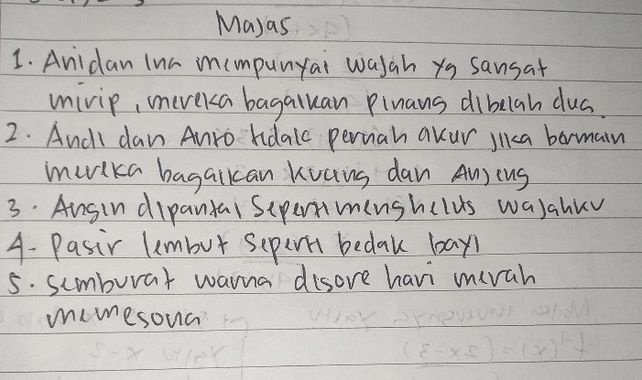 Majas
1. Ani dan Ina mempunyai wajah yg sangat
mirip, mereka bagaikan pinang dibelah dua.
2. Andi dan Anto tidak pernah akur jika bermain
mereka bagaikan kucing dan Anjing
3. Angin dipantai Seperti menghelus wajahku
4. Pasir lembut seperti bedak bayi
5. semburat warna disore hari merah
memesona